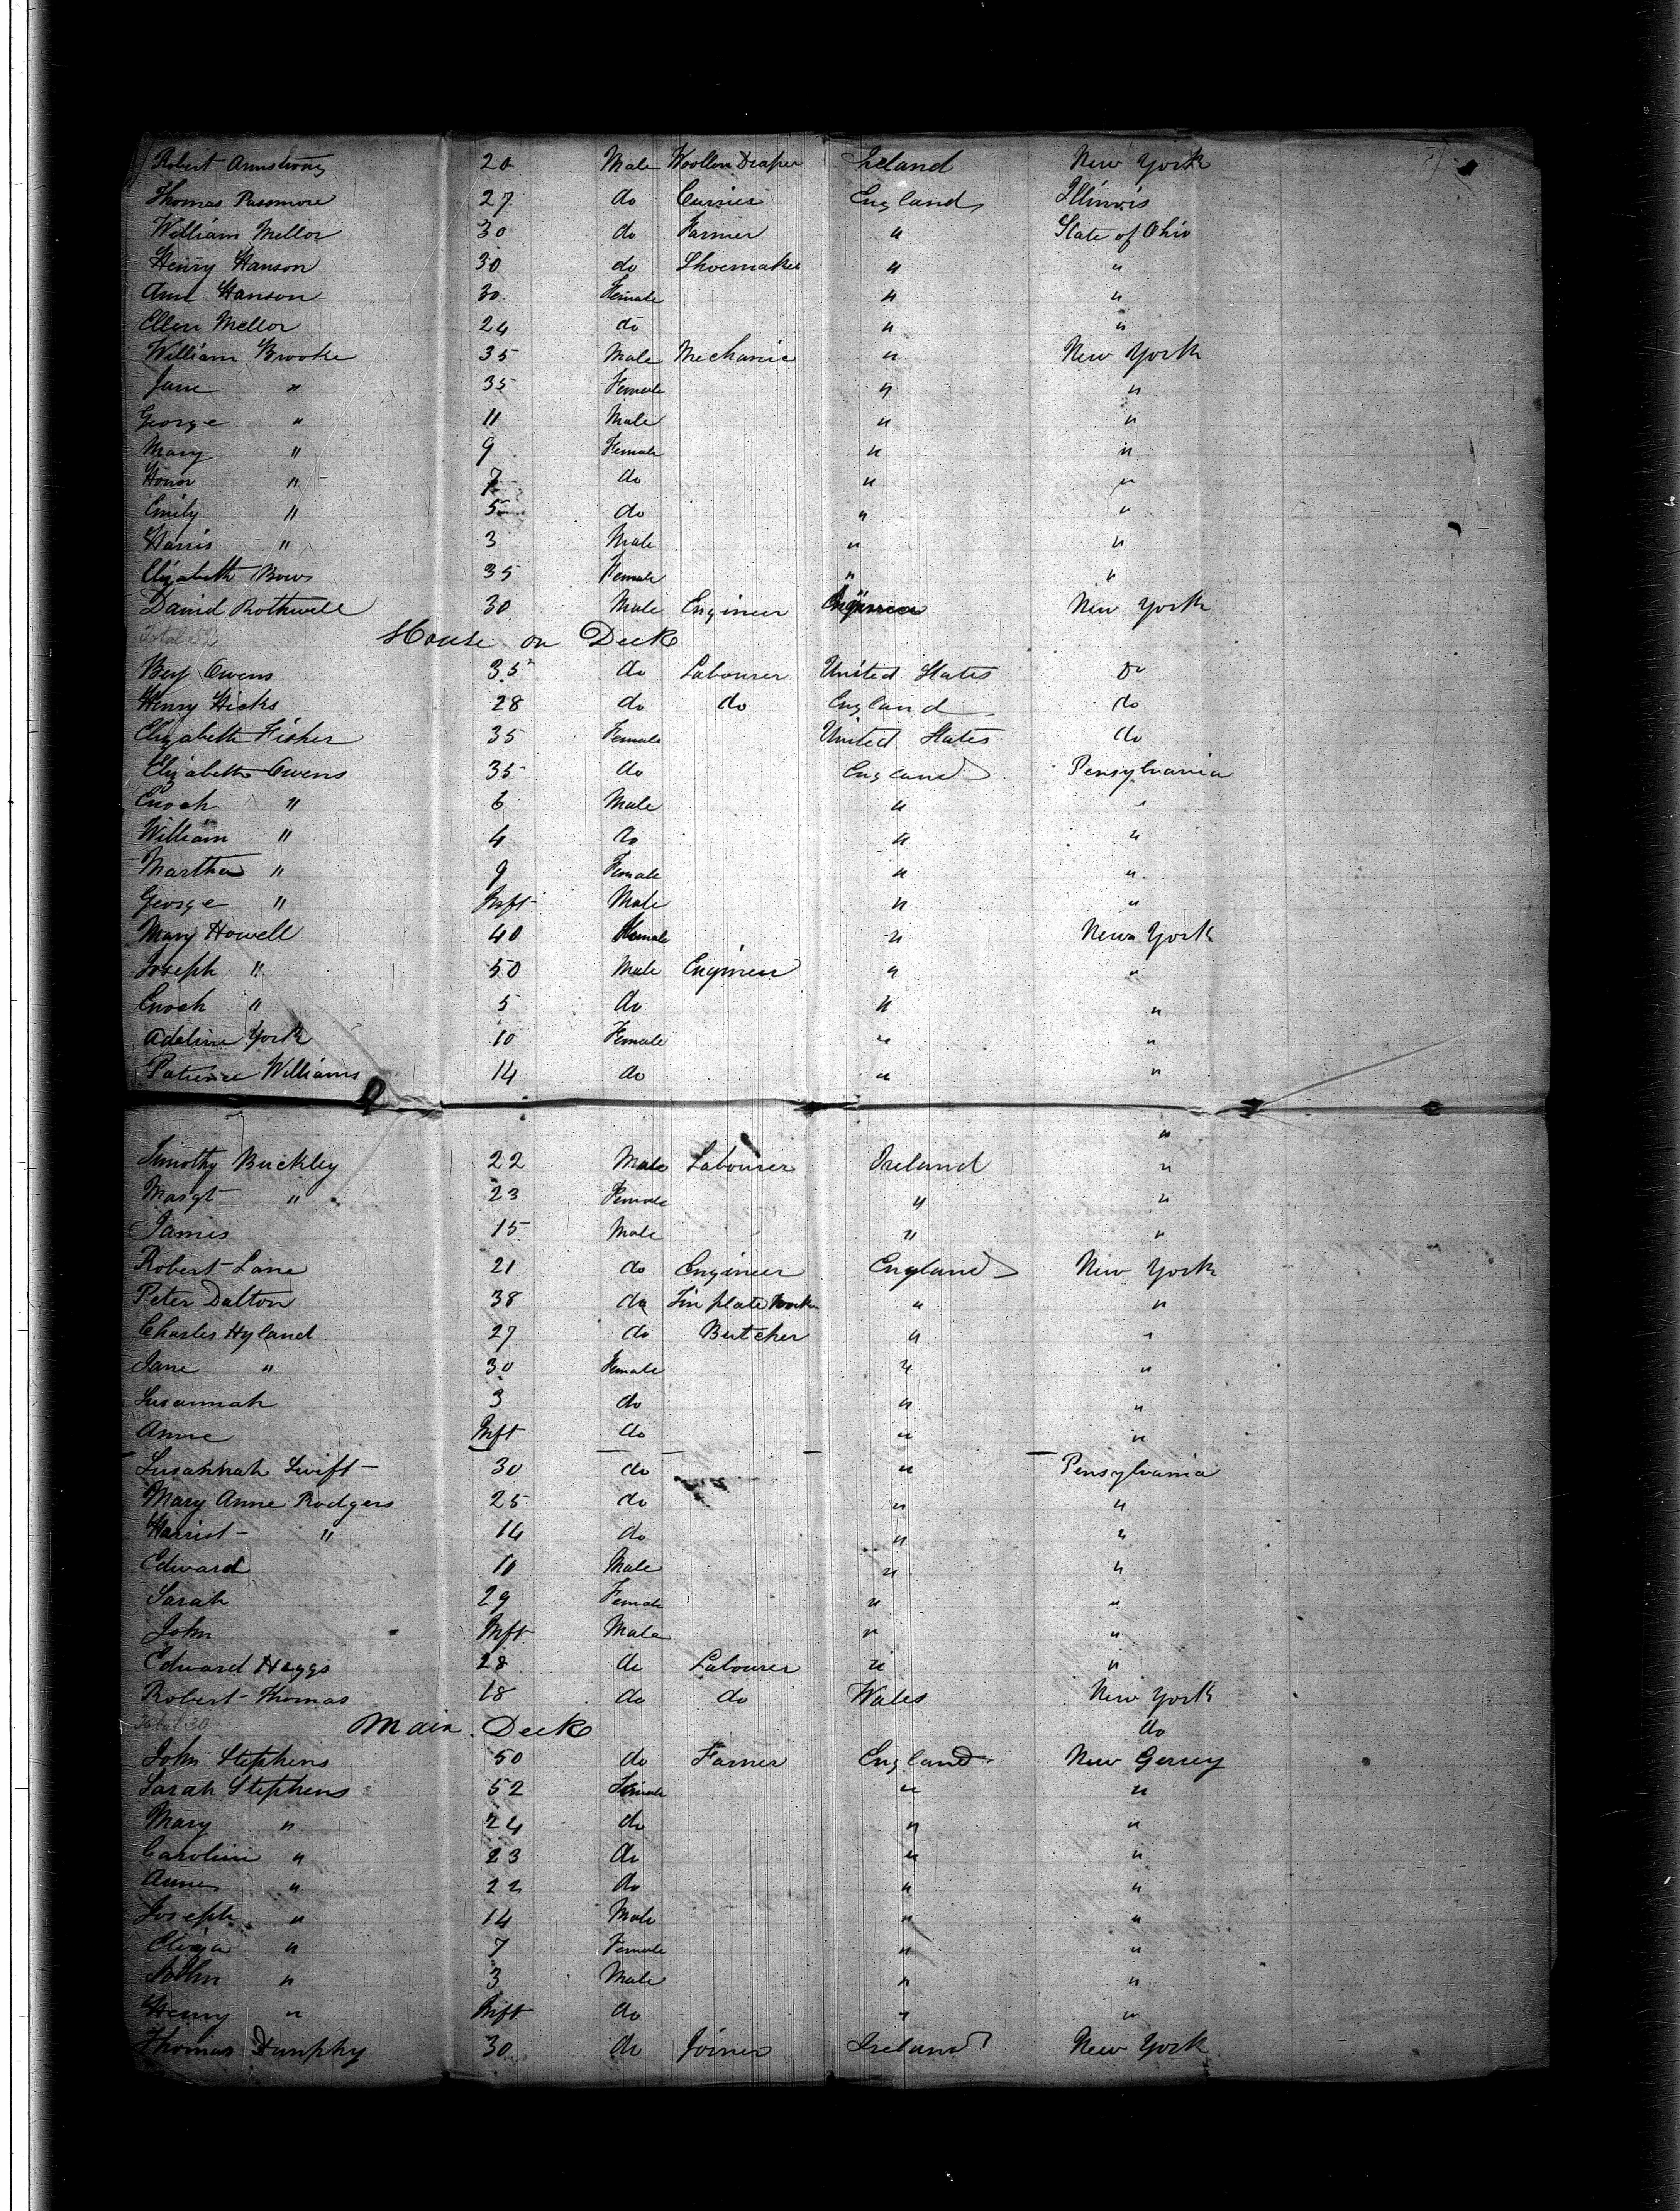 Robert Armstrong 20 Male Woollen Draper Ireland New York
Thomas Passmore 27 do Currier England Illinois
William Mellor 30 do Farmer " State of Ohio
Henry Hanson 30 do Shoemaker " "
Ann Hanson 30 Female " "
Ellen Mellor 24 do " "
William Brooke 35 Male Mechanic " New York
Jane " 35 Female " "
George " 11 Male " "
Mary " 9 Female " "
Honor " 7 do " "
Emily " 5 do " "
Harris " 3 Male " "
Elizabeth Bows 35 Female " "
David Rothwell 30 Male Engineer " New York
Total 52 House on Deck
Benj Owens 35 do Labourer United States Do
Henry Hicks 28 do do England do
Elizabeth Fisher 35 Female United States do
Elizabeth Owens 35 do England Pensylvania
Enoch " 6 Male " "
William " 4 do " "
Martha " 9 Female " "
George " Inft Male " "
Mary Howell 40 Female " New York
Joseph " 50 Male Engineer " "
Enoch " 5 do " "
Adaline York 10 Female " "
Patience Williams 14 do " "
"
Timothy Buckley 22 Male Labourer Ireland "
Margt " 23 Female " "
James 15 Male " "
Robert Lane 21 do Engineer England New York
Peter Dalton 38 do Tin plate Worker " "
Charles Hyland 27 do Butcher " "
Jane " 30 Female " "
Susannah 3 do " "
Anne Inft do " "
Susannah Swift 30 do " Pensylvania
Mary Anne Rodgers 25 do " "
Harriet " 14 do " "
Edward 10 Male " "
Sarah 29 Female " "
John Inft Male " "
Edward Heggs 28 do Labourer " "
Robert Thomas 18 do do Wales New York
Total 30 Main Deck do
John Stephens 50 do Farmer England New Gersey
Sarah Stephens 52 Female " "
Mary " 24 do " "
Caroline " 23 do " "
Anne " 22 do " "
Joseph " 14 Male " "
Eliza " 7 Female " "
John " 3 Male " "
Henry " Inft do " "
Thomas Dunphy 30 do Joiner Ireland New York